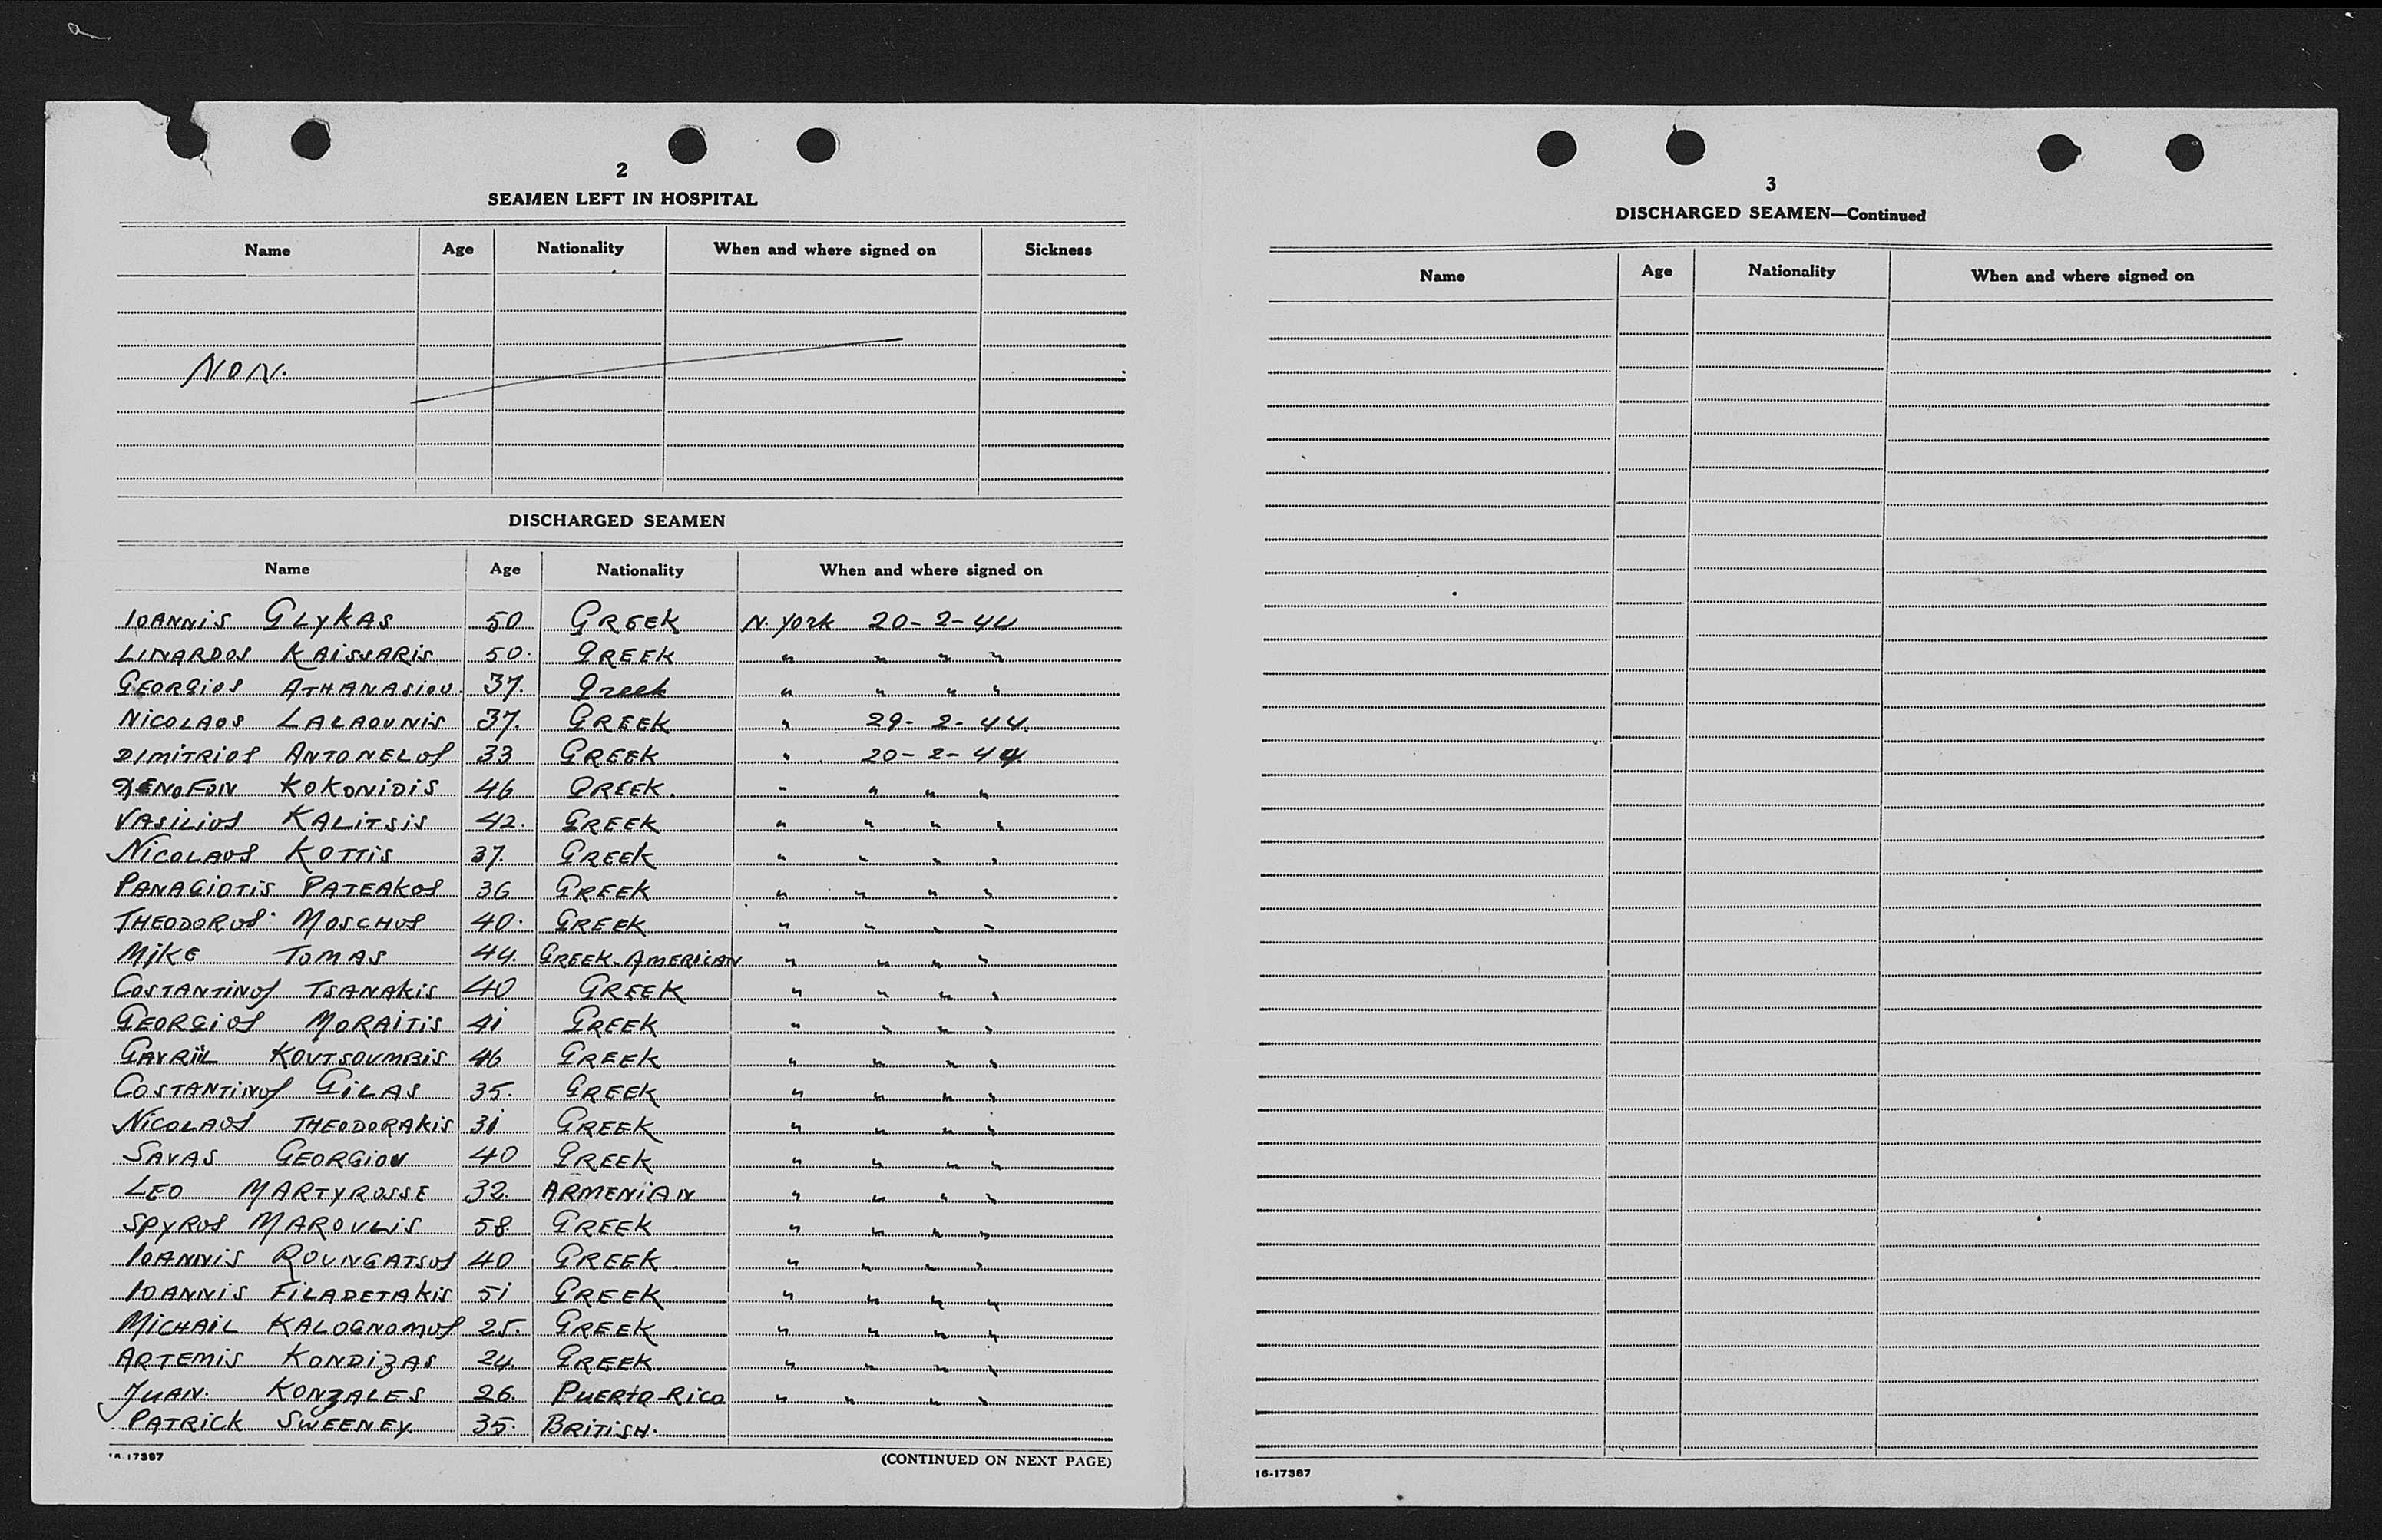 2
SEAMEN LEFT IN HOSPITAL
Name Age Nationality When and where signed on Sickness
NON.
DISCHARGED SEAMEN
Name Age Nationality When and where signed on
IOANNIS GLYKAS 50 GREEK N. York 20-2-44
LINARDOS KAISSARIS 50. GREEK " " " "
GEORGIOS ATHANASIOU. 37. Greek " " " "
NICOLAOS LALAOUNIS 37. GREEK " 29-2-44.
DIMITRIOS ANTONELOS 33 GREEK " 20-2-44
XENOFON KOKONIDIS 46 GREEK. " " " "
VASILIOS KALITSIS 42. GREEK " " " "
NICOLAOS KOTTIS 37. GREEK " " " "
PANAGIOTIS PATEAKOS 36 GREEK " " " "
THEODOROS MOSCHOS 40. GREEK " " " "
MIKE TOMAS 44. GREEK-AMERICAN " " " "
COSTANTINOS TSANAKIS 40 GREEK " " " "
GEORGIOS MORAITIS 41 GREEK " " " "
GAVRIIL KOUTSOUMBIS 46 GREEK " " " "
COSTANTINOS GILAS 35. GREEK " " " "
NICOLAOS THEODORAKIS 31 GREEK " " " "
SAVAS GEORGIOU 40 GREEK " " " "
LEO MARTYROSSE 32. ARMENIAN " " " "
SPYROS MAROULIS 58. GREEK " " " "
IOANNIS ROUNGATSOS 40 GREEK " " " "
IOANNIS FILADETAKIS 51 GREEK " " " "
MICHAIL KALOGNOMOS 25. GREEK " " " "
ARTEMIS KONDIZAS 24. GREEK. " " " "
JUAN. KONZALES 26. PUERTO-RICO " " " "
PATRICK SWEENEY. 35. BRITISH.
16-17387 (CONTINUED ON NEXT PAGE)
3
DISCHARGED SEAMEN—Continued
Name Age Nationality When and where signed on
16-17387